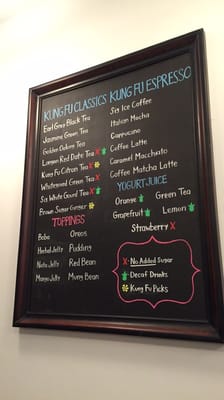 KUNG FU CLASSICS
Earl Grey Black Tea
Jasmine Green Tea
Golden Oolong Tea
Longan Red Date Tea X
Kung Fu Citron Tea X
Wintermelon Green Tea X
Six White Gourd Tea X
Brown Sugar Ginger
TOPPINGS
Boba Oreos
Herbal Jelly Pudding
Nata Jelly Red Bean
Mango Jelly Mung Bean
KUNG FU ESPRESSO
Sig Ice Coffee
Italian Mocha
Cappuccino
Coffee Latte
Caramel Macchiato
Coffee Matcha Latte
YOGURT JUICE
Orange Green Tea
Grapefruit Lemon
Strawberry X
X - No Added Sugar
Decaf Drinks
Kung Fu Picks